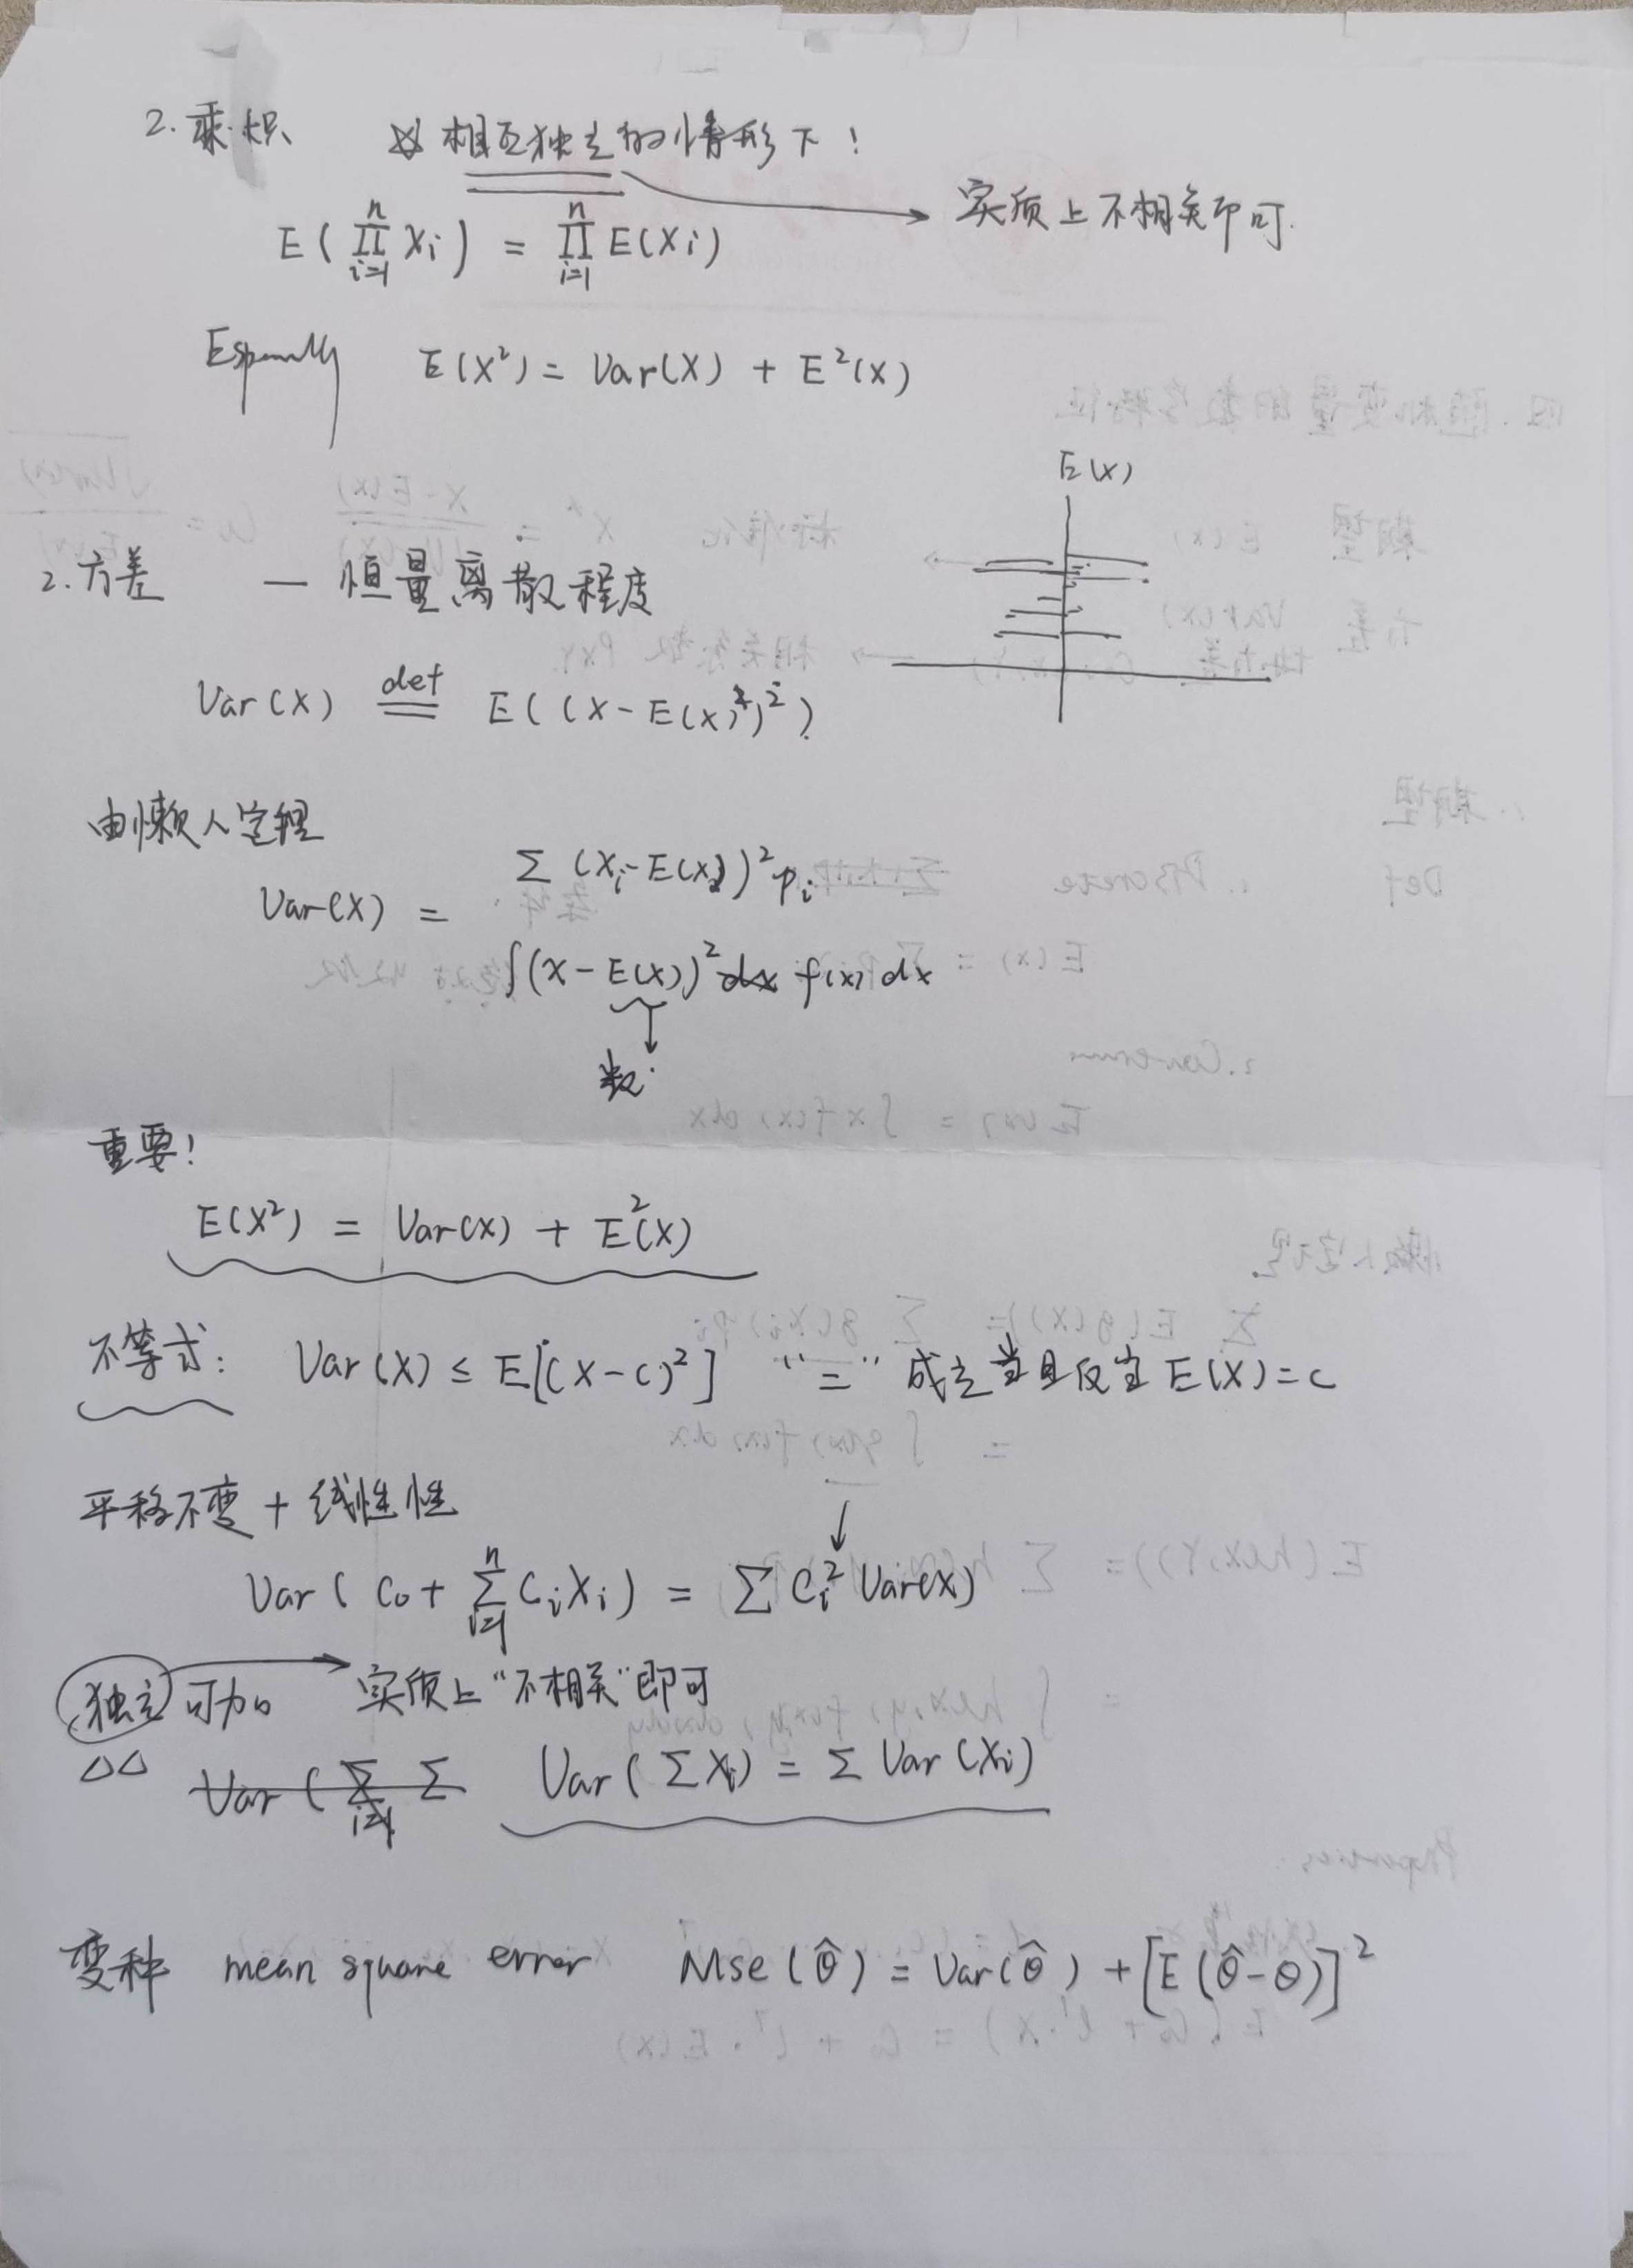 2. 乘积 相互独立的情形下!
实质上不相关即可.
E(∏_{i=1}^{n} Xi) = ∏_{i=1}^{n} E(Xi)
E(X²) = Var(X) + E²(X)
E(X)
2. 方差 — 恒量离散程度
Var(X) ≝ E((X-E(X))²)
由懒人定理
Var(X) =
Σ (Xi-E(X))² pi
∫(x-E(X))² dx f(x) dx
↓
数.
重要!
E(X²) = Var(X) + E²(X)
不等式: Var(X) ≤ E[(X-C)²] "=" 成立当且仅当 E(X)=C
平移不变 + 线性性
↓
Var(C₀+ Σ_{i=1}^{n} CiXi) = Σ Ci² Var(X)
独立可加 → 实质上"不相关"即可
△△ Var(Σ_{i=1} Σ Var(ΣXi) = Σ Var(Xi)
变种 mean square error Mse(θ̂) = Var(θ̂) + [E(θ̂-θ)]²